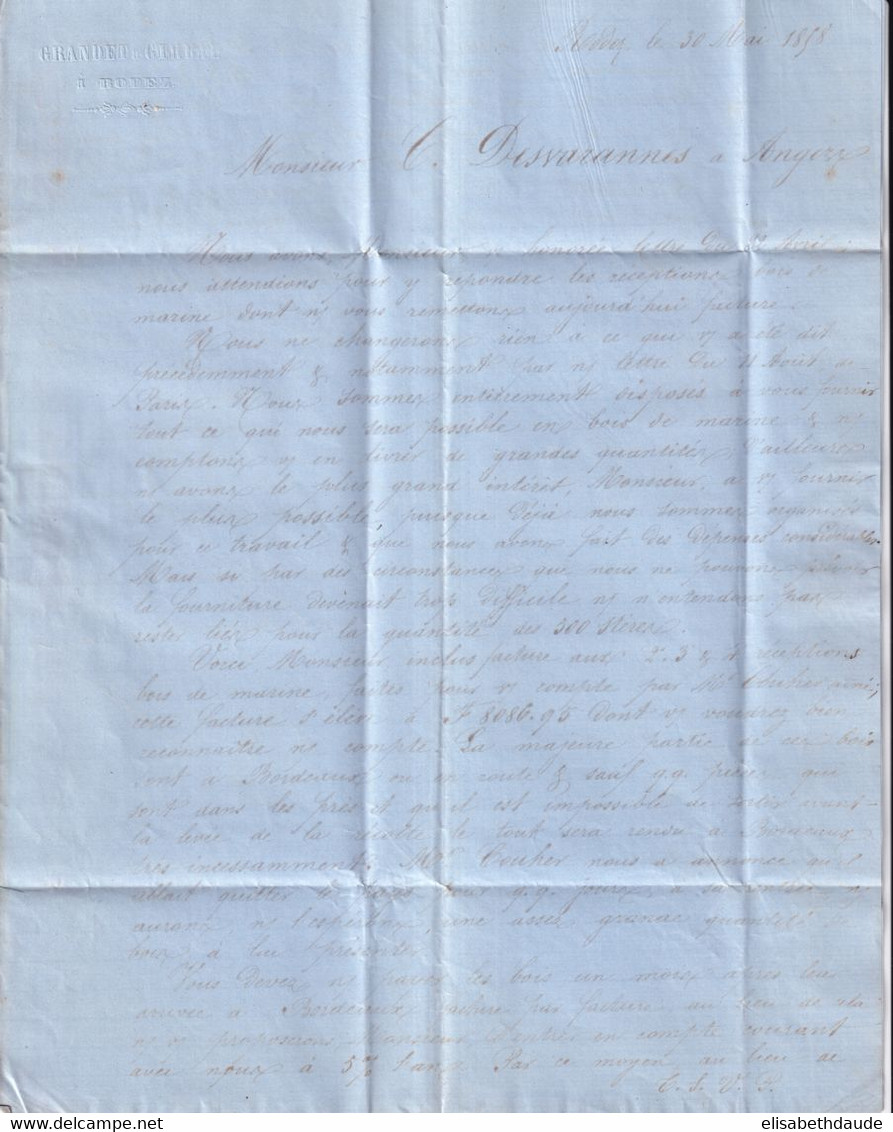 GRANDET &
à RODEZ
Rodez le 30 Mai 1858
Monsieur C. Desvarannes à Angers
Nous avons Monsieur honorée lettre du Avril
nous attendions pour y répondre les réceptions bois de
marine dont ns vous remettons aujourd'hui facture.
Nous ne changerons rien à ce qui vs a été dit
précédemment & notamment par ns lettre du 11 Août de
Paris. Nous sommes entièrement disposés à vous fournir
tout ce qui nous sera possible en bois de marine & ns
comptons vs en livrer de grandes quantités, d'ailleurs
ns avons le plus grand intérêt, Monsieur, a vs fournir
le plus possible, puisque déjà nous sommes organisés
pour ce travail & que nous avons fait des dépenses considérables
Mais si par des circonstances que nous ne pouvons prévoir
la fourniture devenait trop difficile ns n'entendons pas
rester liés pour la quantité des 300 stères.
Voici Monsieur inclus facture aux 2. 3 & 4 réceptions
bois de marine faites pour vs compte par Mr
cette facture s'élève à F 8086.95 dont vs voudrez bien
reconnaître ns compte. La majeure partie de ces bois
sont à Bordeaux ou en route & sauf q.q. pièces qui
sont dans les prés et qu'il est impossible de sortir avant
la levée de la récolte le tout sera rendu à Bordeaux
très incessamment. Mr nous a annoncé qu'il
allait quitter pour q.q. jours, à sa rentrée ns
aurons ns l'espérons, une assez grande quantité de
bois à lui présenter.
Vous devez ns payer les bois un mois après leur
arrivée à Bordeaux facture par facture au lieu de cela
ns vs proposerons Monsieur d'entrer en compte courant
avec nous à 5% l'an. Par ce moyen au lieu de
T. S. V. P.
elisabethdaude